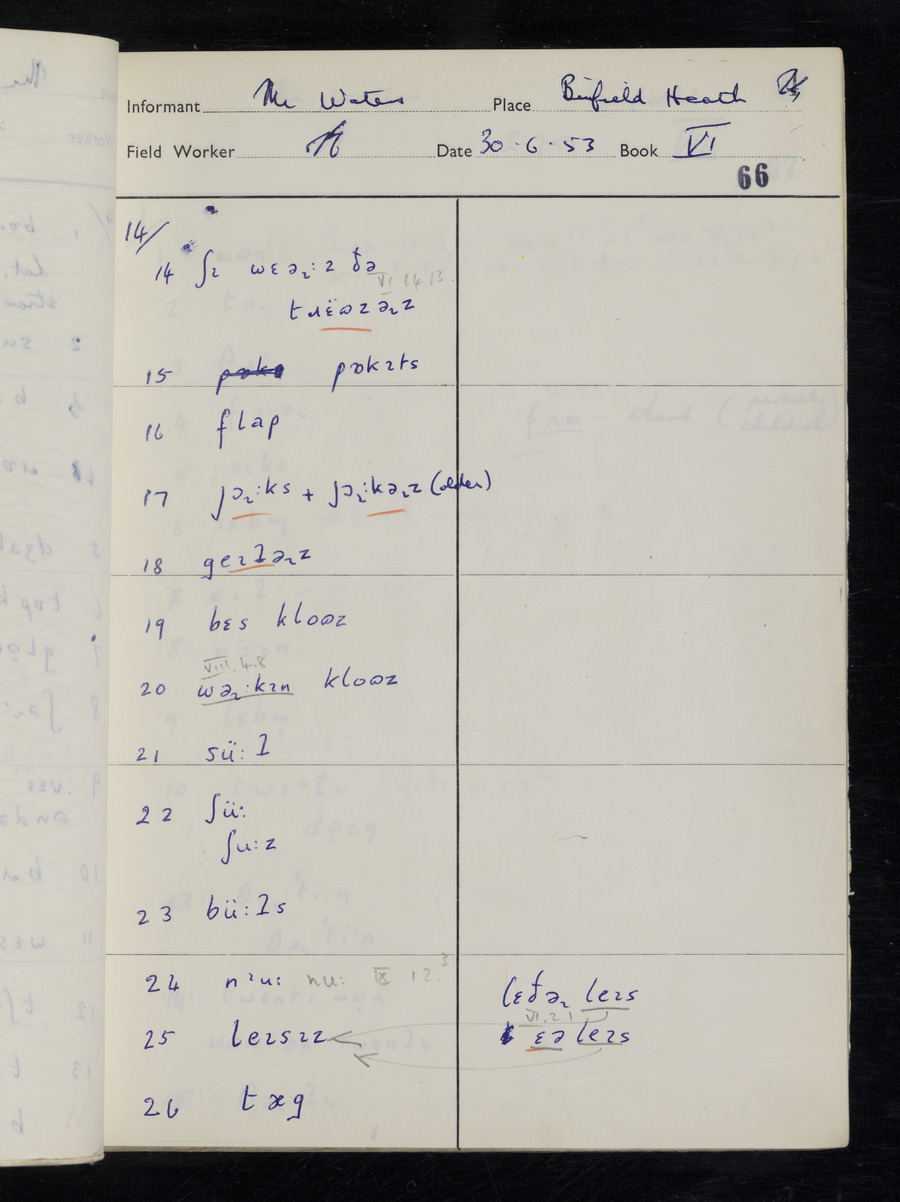 Informant Mr Waters Place Binfield Heath
Field Worker Date 30.6.53 Book VI
66
14/
14 ʃɪ wɛəʴːz ðə
VI 14.13
tɹɛ̈ʊzəʴz
15 pɒkɪts
16 flap
17 jəʴːks + jəʴːkəʴz (older)
18 geɪɫəʴz
19 bɛs kloʊz
VIII.4.8
20 wəʴːkɪn kloʊz
21 süːɫ
22 ʃüː
ʃuːz
23 büːɫs
24 nᶦuː nuː IX.12.3
lɛðəʴ leɪs
25 leɪsɪz
VI.2.1
ɛəleɪs
26 tæg